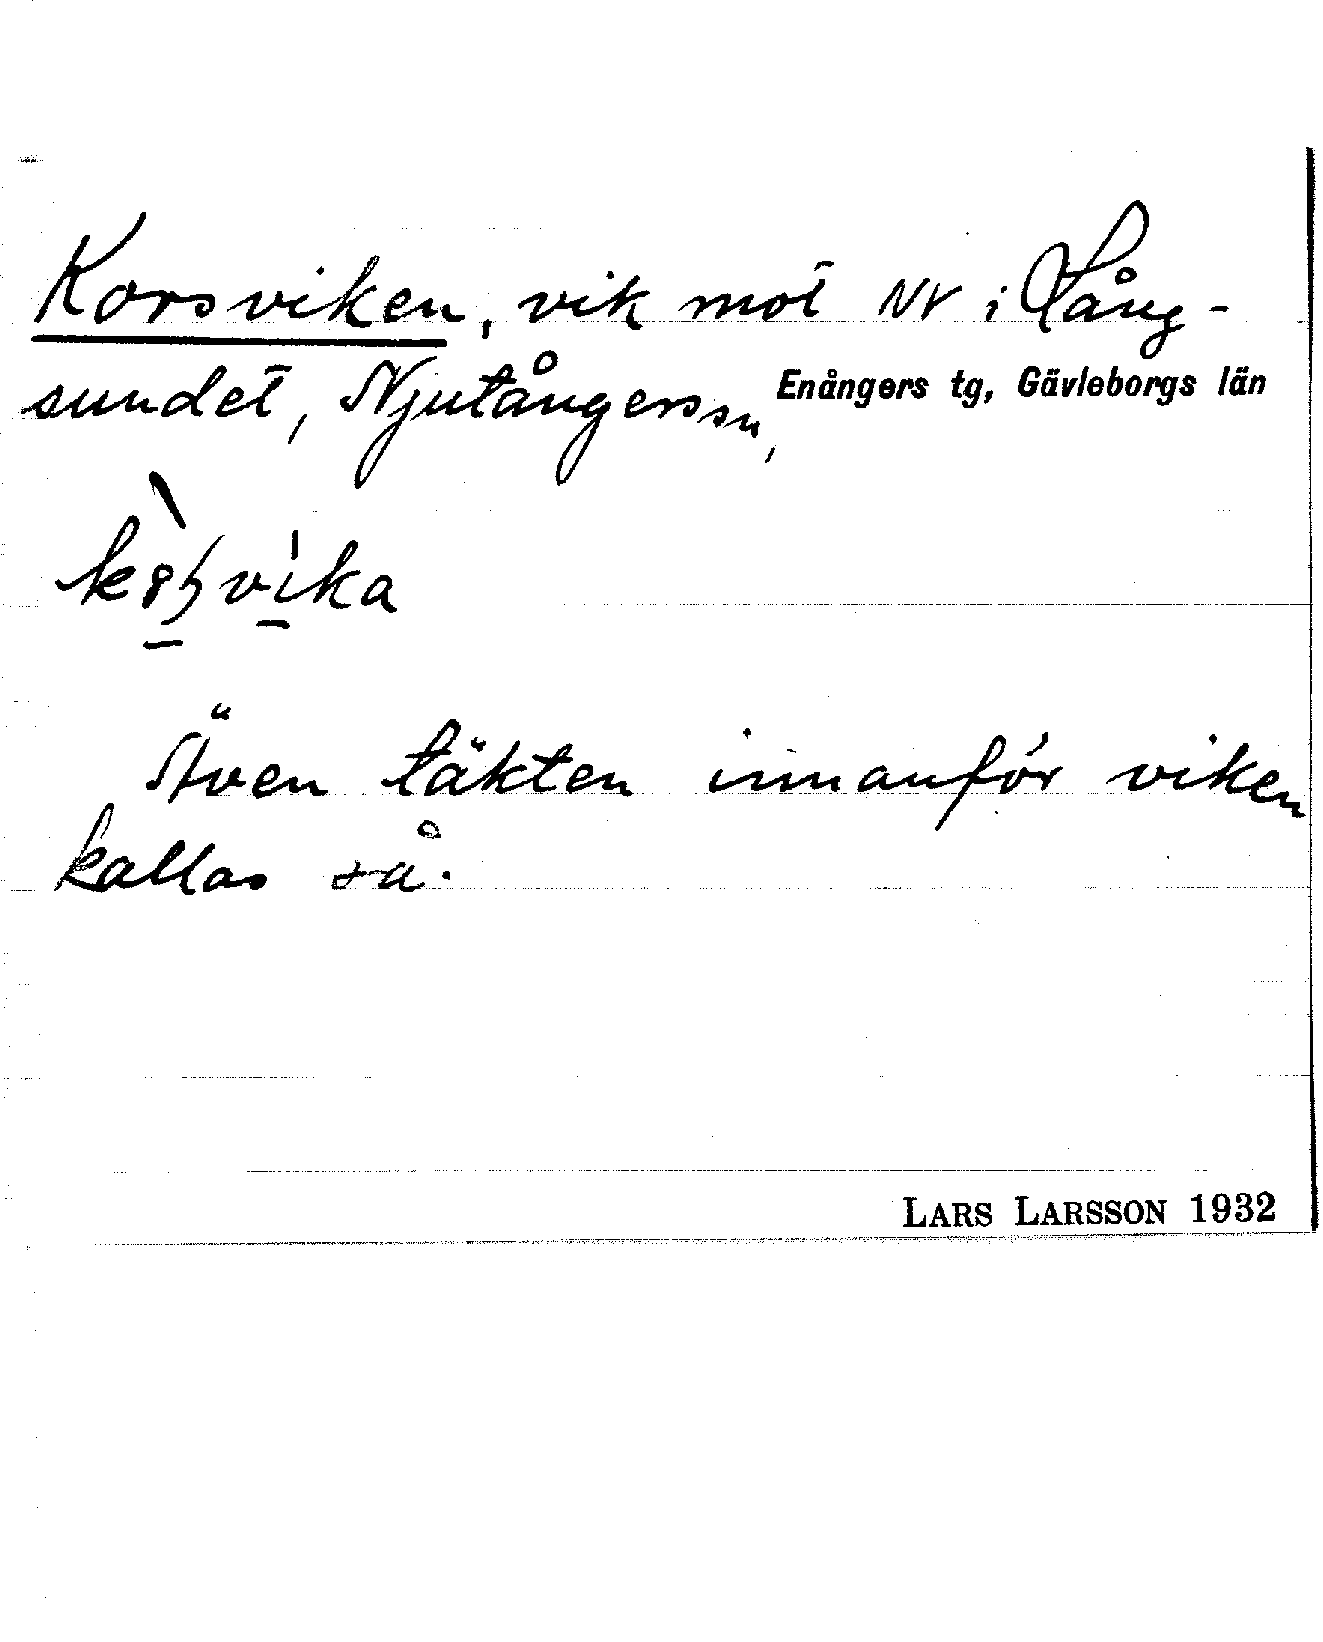 Korsviken, vik mot NV i Lång-
sundet, Njutångers sn,
Enångers tg, Gävleborgs län
Även täkten innanför viken
kallas så.
LARS LARSSON 1932